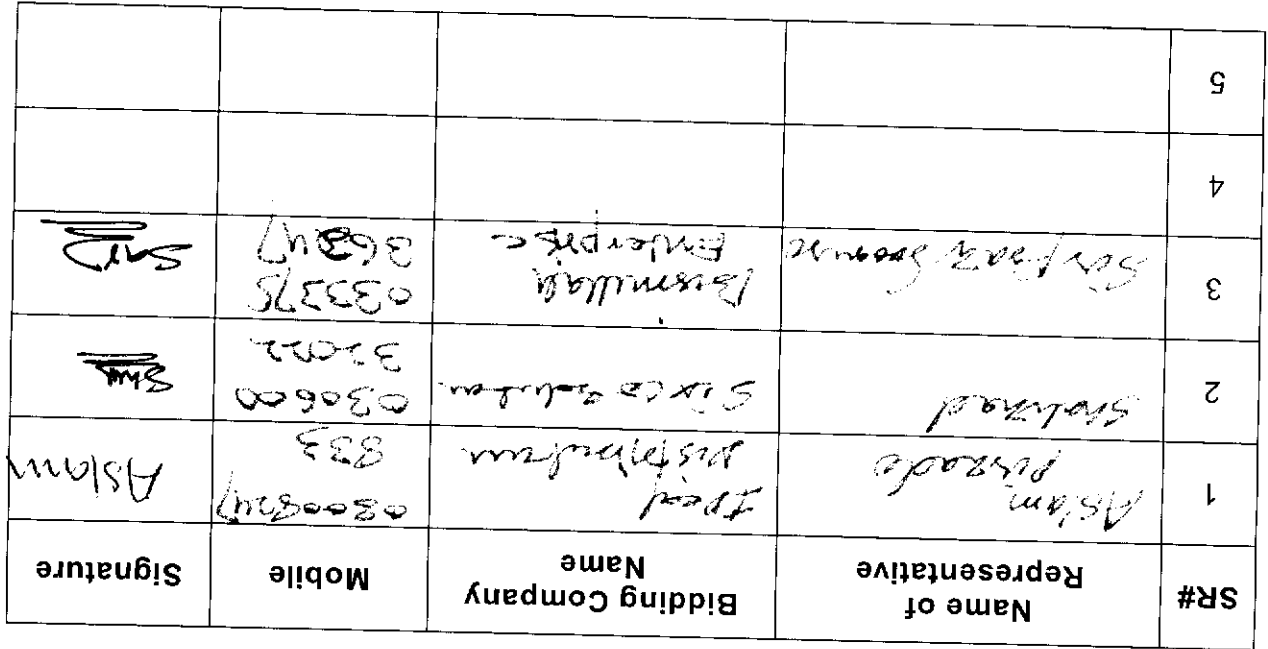 SR#
Name of
Representative
Bidding Company
Name
Mobile
Signature
1
Aslam
Pirzado
Ideal
Distribution
833
Aslam
2
Shahzad
Solution
030600
32022
3
Sarfraz
Bismillah
Enterprise
033375
36247
4
5